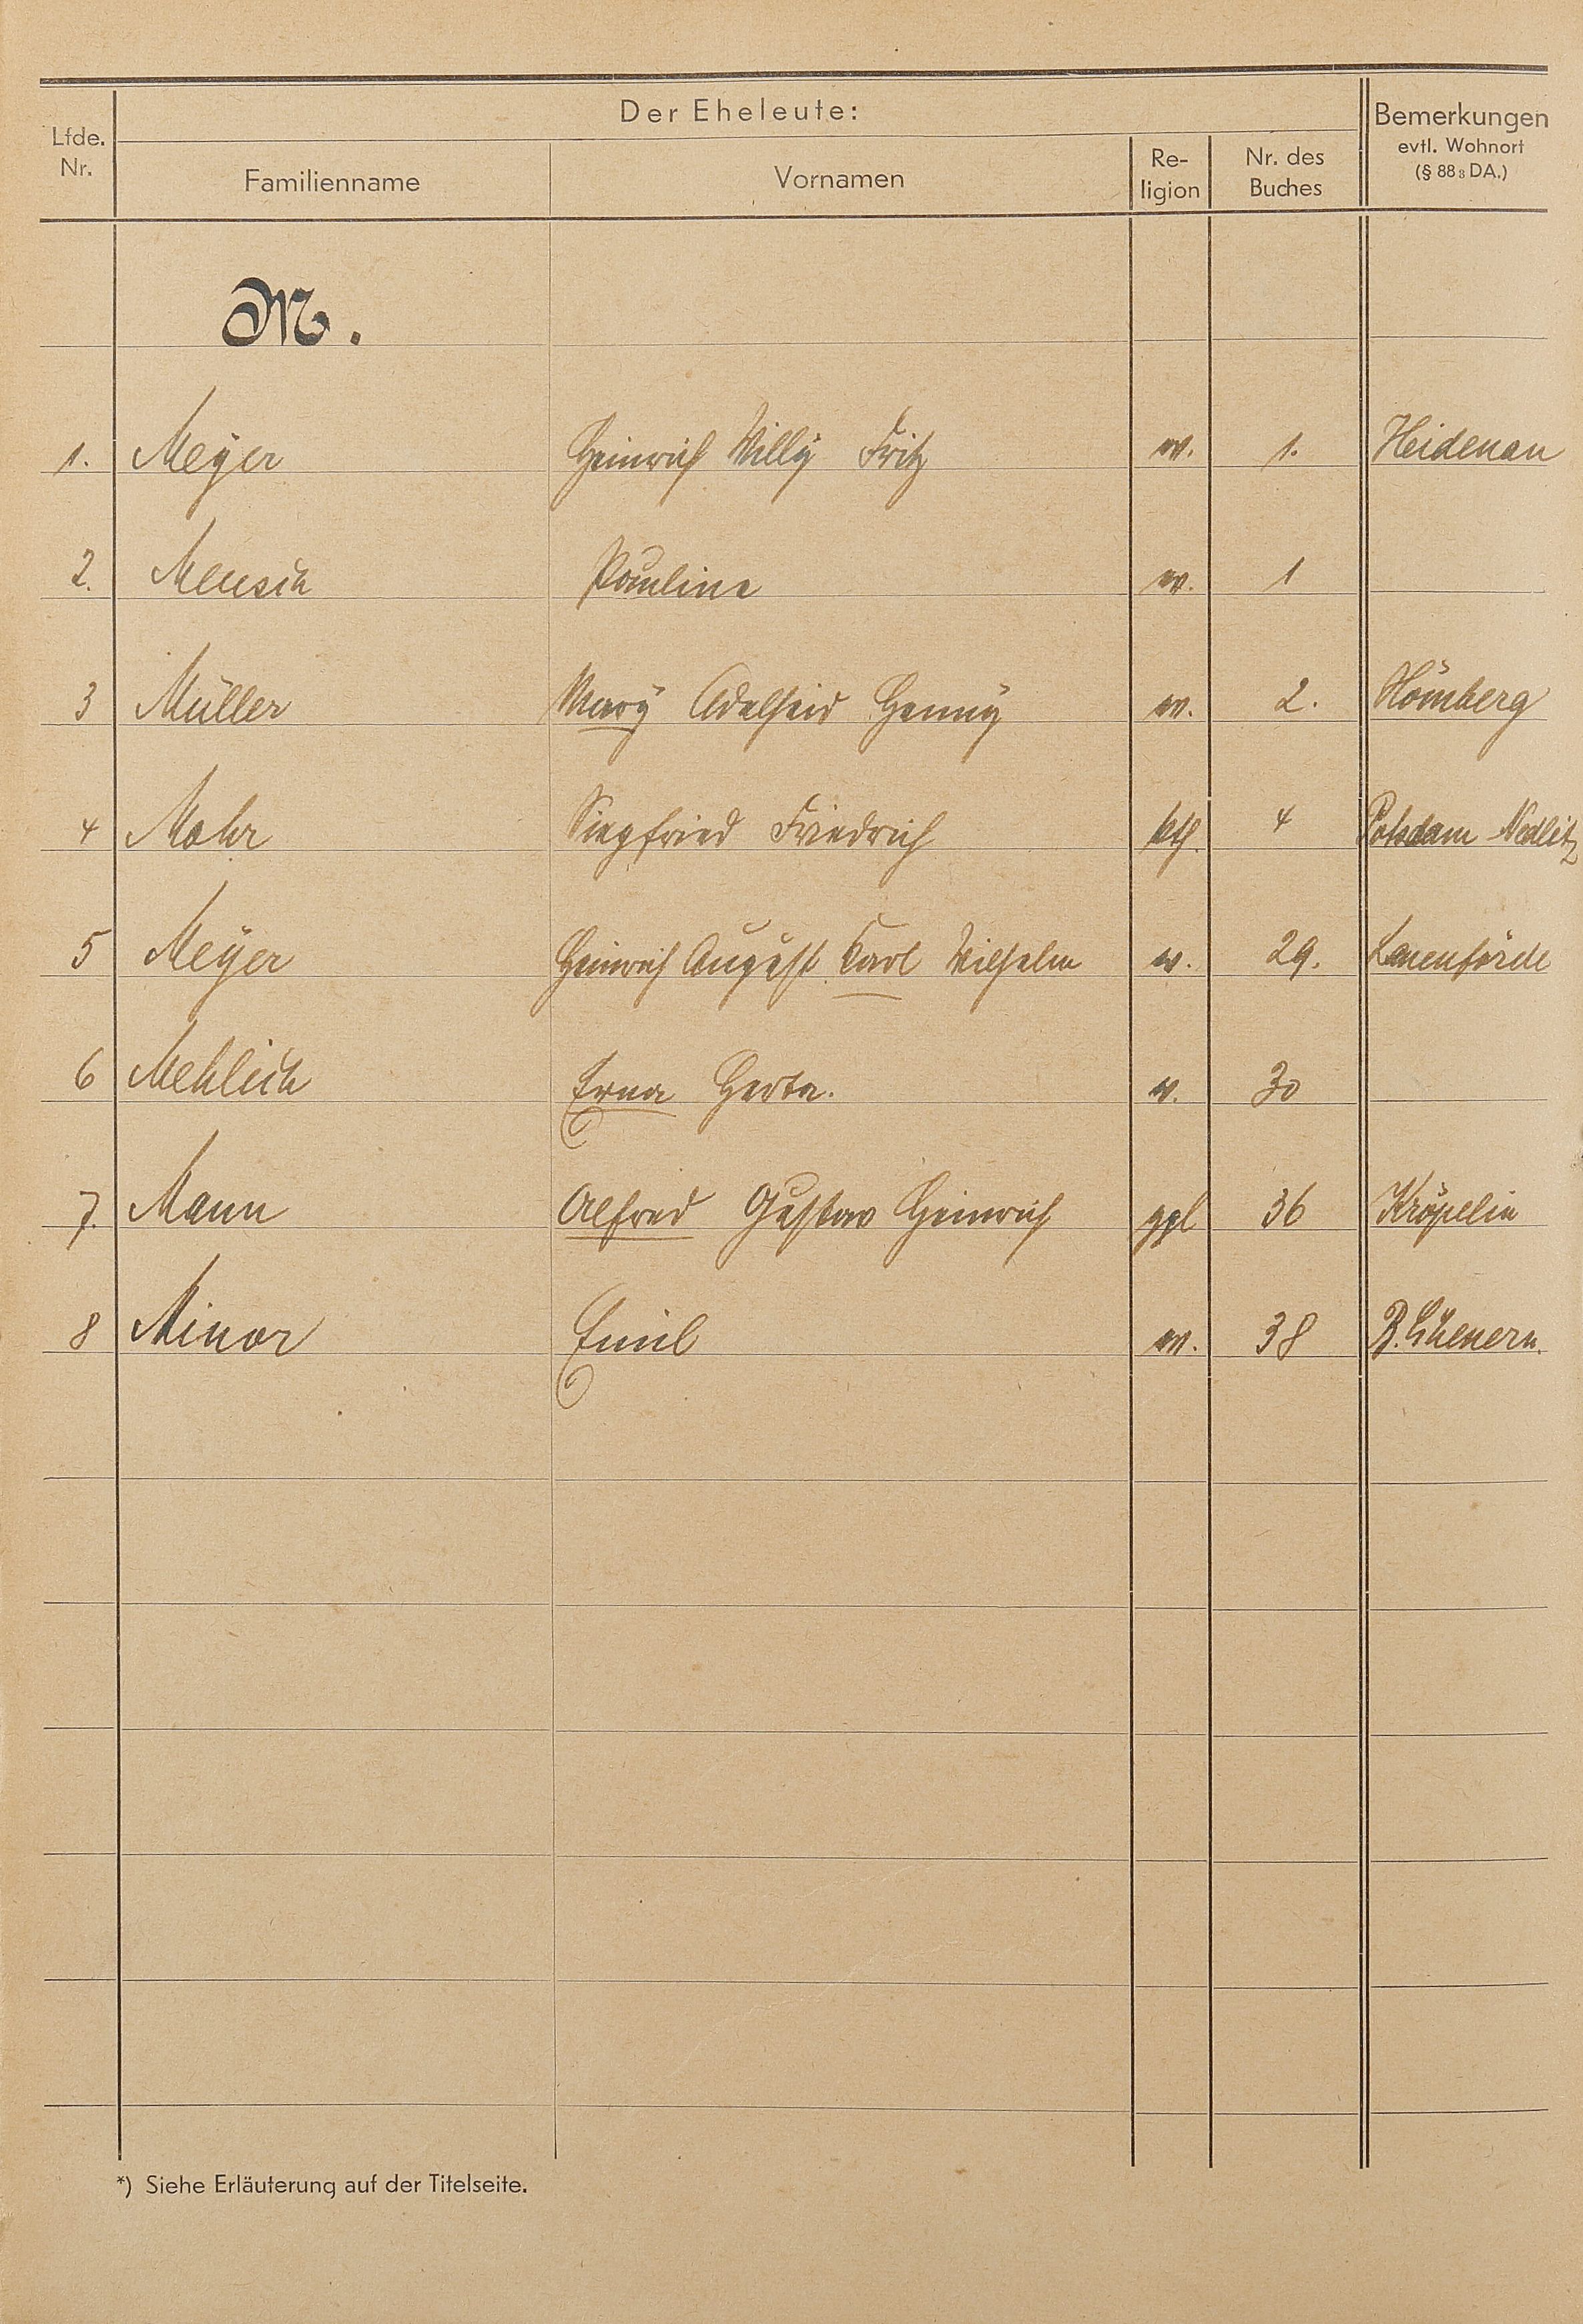 Der Eheleute:
Lfde. Nr. Familienname Vornamen Re- ligion Nr. des Buches Bemerkungen evtl. Wohnort (§ 88 8 DA.)
M.
1. Meÿer Heinrich Willÿ Fritz ev. 1. Heidenau
2. Mensch Pauline ev. 1
3 Müller Marÿ Adelheid Hennÿ ev. 2.
4 Mohr Siegfried Friedrich kth. 4 Potsdam Nedlitz
5 Meÿer Heinrich August Carl Wilhelm ev. 29. Lauenförde
6 Mehlich Erna Herta. ev. 30
7. Mann Alfred Gustav Heinrich ggl 36 Kröpelin
8 Minor Emil ev. 38
*) Siehe Erläuterung auf der Titelseite.